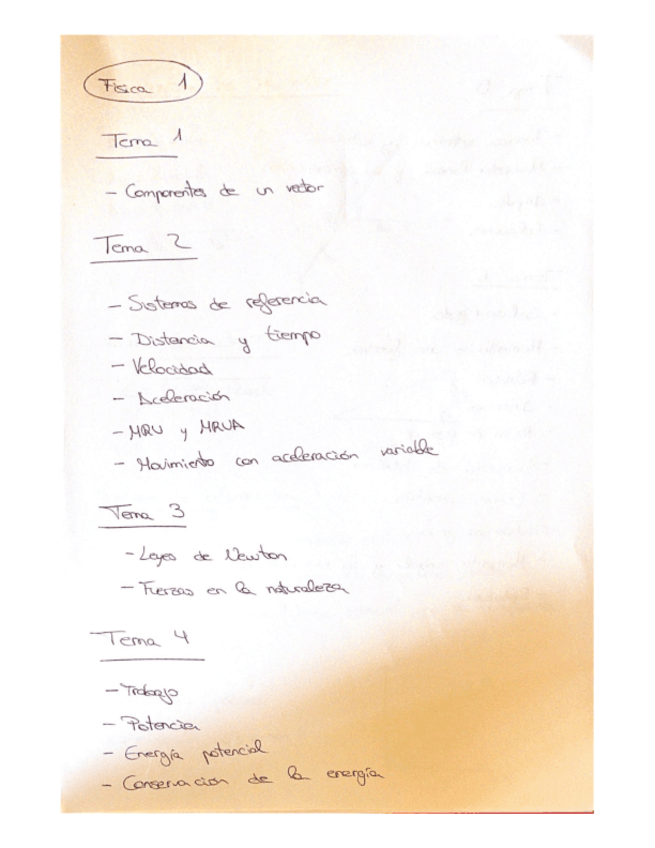 Física 1
Tema 1
- Componentes de un vector
Tema 2
- Sistemas de referencia
- Distancia y tiempo
- Velocidad
- Aceleración
- MRU y MRUA
- Movimiento con aceleración variable
Tema 3
- Leyes de Newton
- Fuerzas en la naturaleza
Tema 4
- Trabajo
- Potencia
- Energía potencial
- Conservacion de la energía